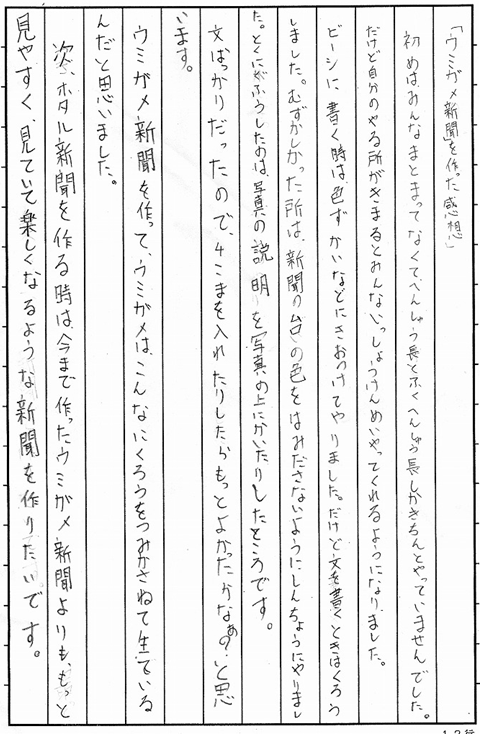 「ウミガメ新聞」を作った感想」
初めはみんなまとまってなくてへんしゅう長とふくへんしゅう長しかきちんとやっていませんでした。
だけど自分のやる所がきまるとみんないっしょうけんめいやってくれるようになりました。
ビーシに書く時は色ずかいなどにきおつけてやりました。だけど文を書くときはくろう
しました。むずかしかった所は、新聞の台の色をはみださないようにしんちょうにやりまし
た。とくにくふうしたのは、写真の説明を写真の上にかいたりしたところです。
文ばっかりだったので、4こまを入れたりしたらもっとよかったかなぁ?と思
います。
ウミガメ新聞を作って、ウミガメは、こんなにくろうをつみかさねて生きている
んだと思いました。
次、ホタル新聞を作る時は、今まで作ったウミガメ新聞よりも、もっと
見やすく、見ていて楽しくなるような新聞を作りたいです。
12行